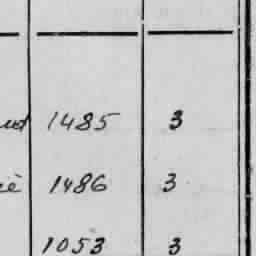 1485 3
1486 3
1053 3